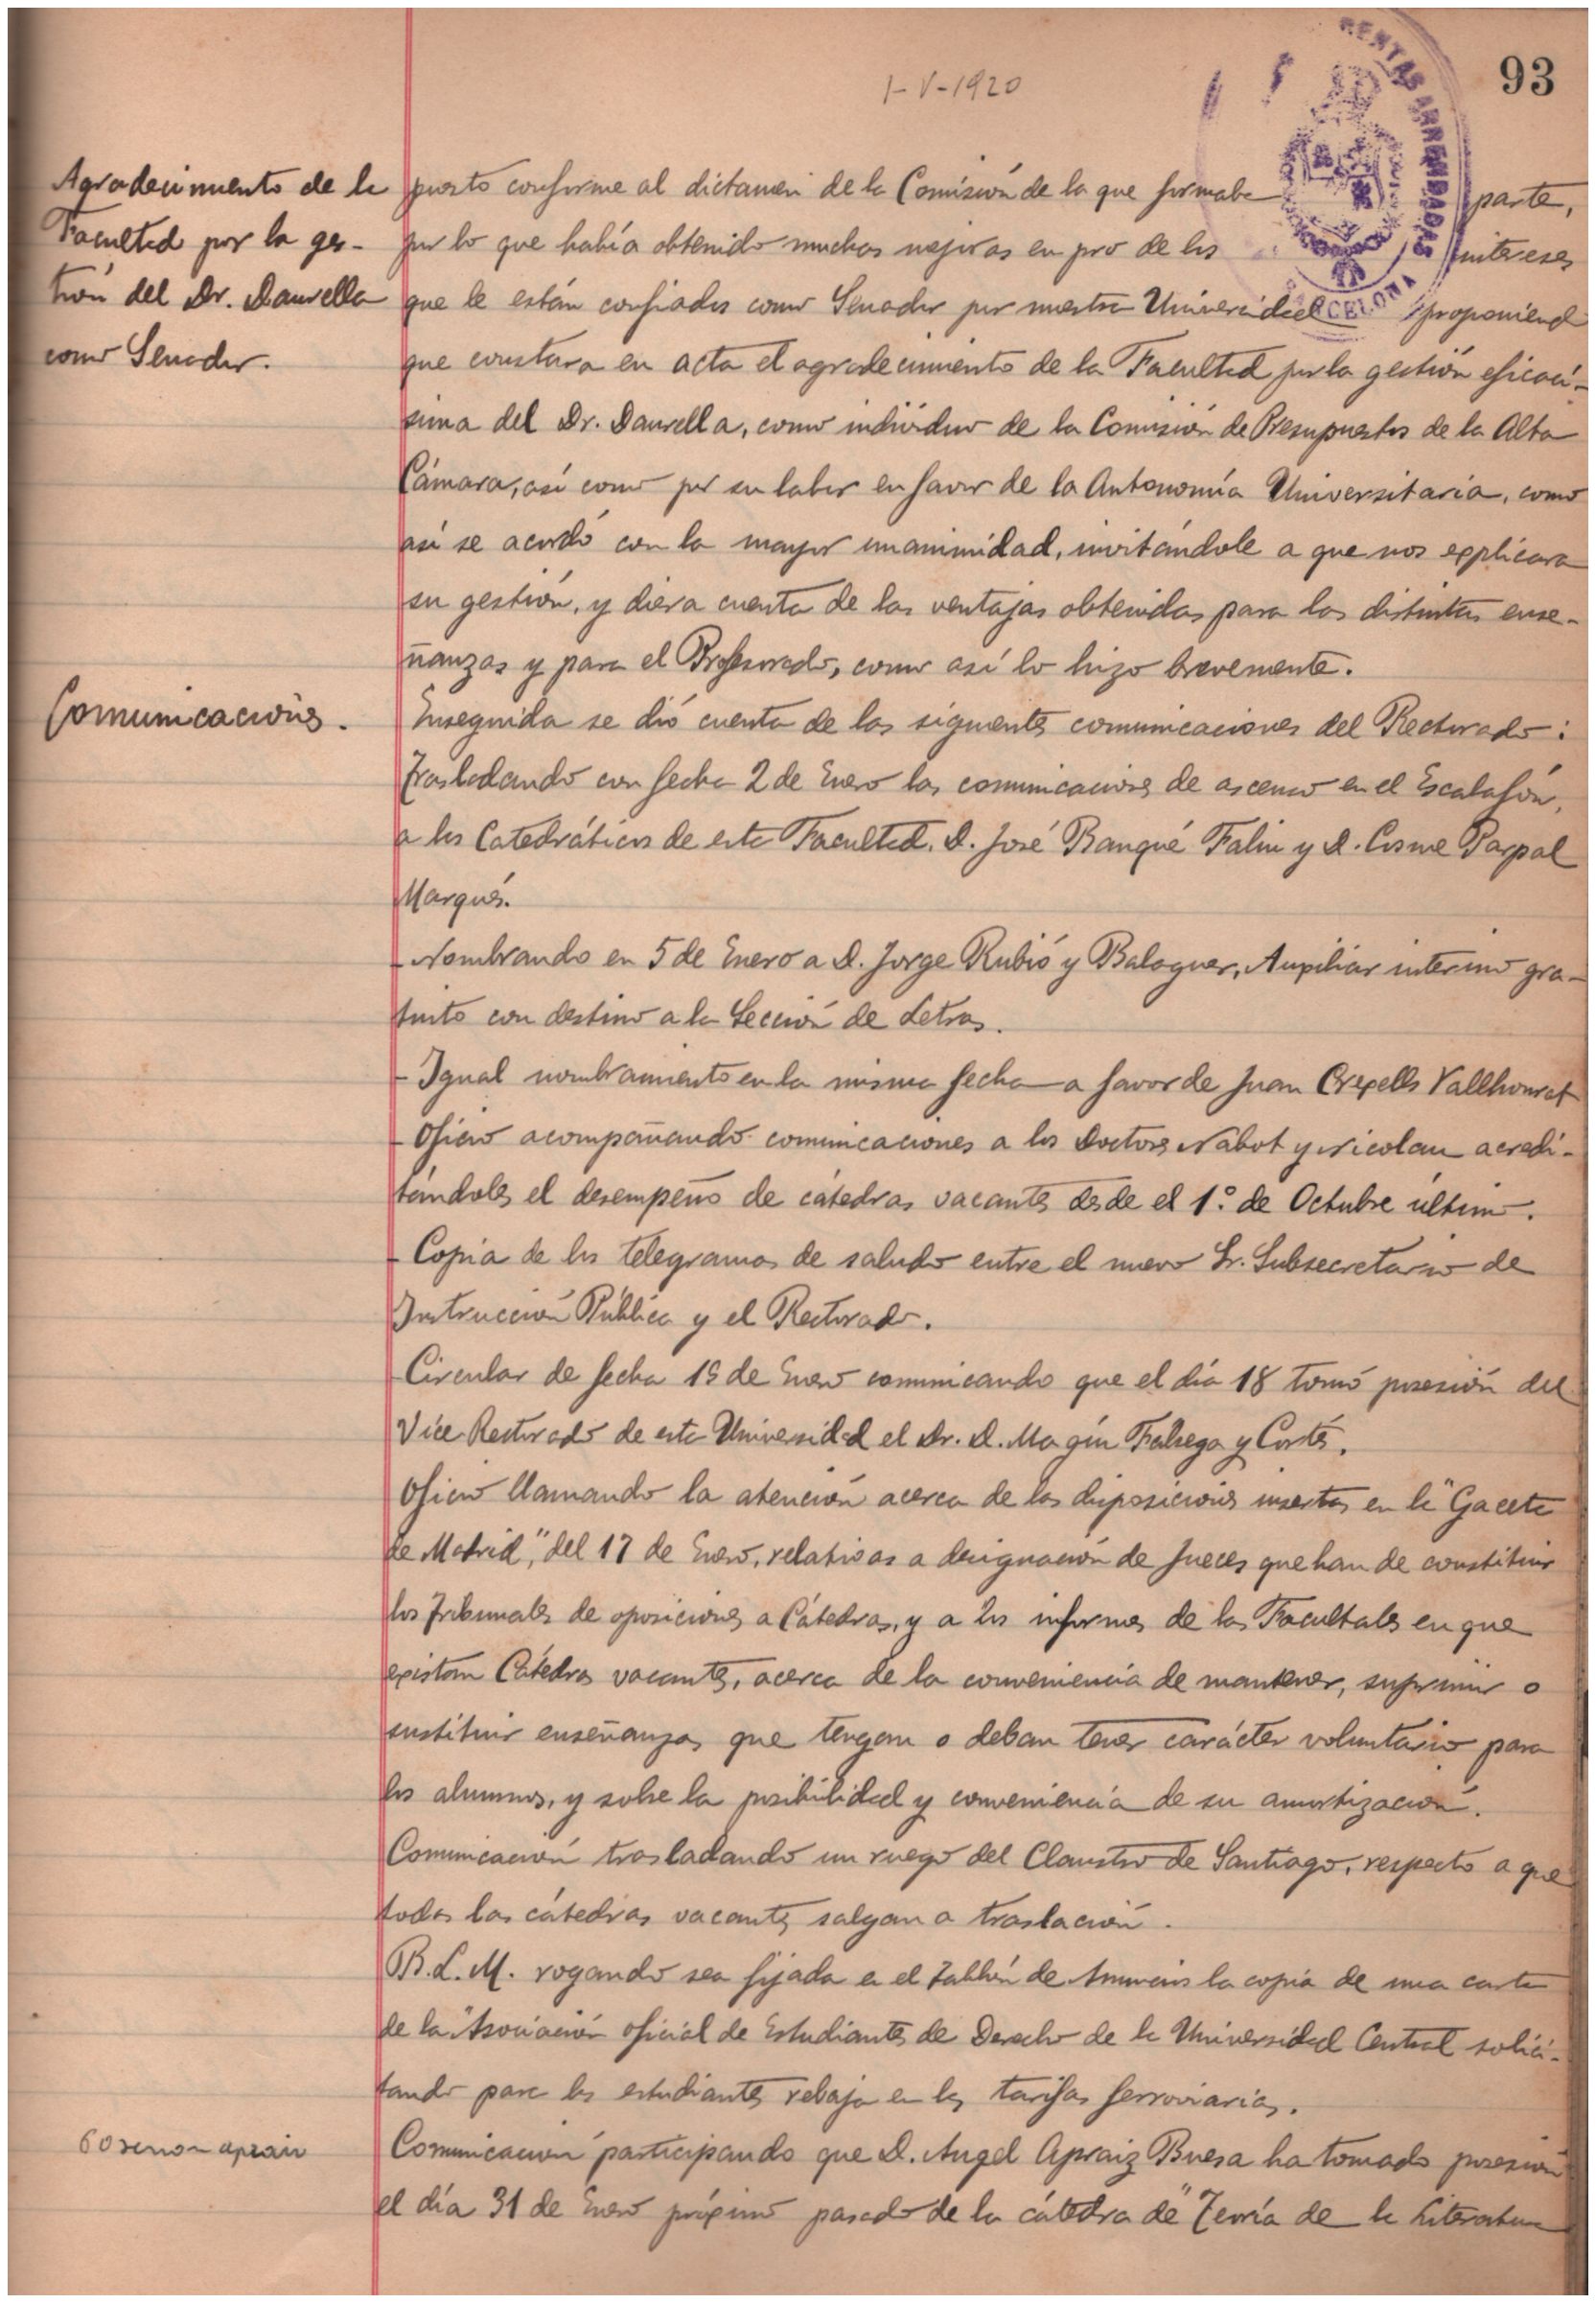 93
1-V-1920
RENTAS ARRENDADAS
BARCELONA
Agradecimiento de la
Facultad por la ges-
tión del Dr. Daurella
como Senador.
puesto conforme al dictamen de la Comisión de la que formaba parte,
por lo que había obtenido muchas mejoras en pro de los intereses
que le están confiados como Senador por nuestra Universidad proponiend
que constara en acta el agradecimiento de la Facultad por la gestión eficací-
sima del Dr. Daurella, como individuo de la Comisión de Presupuestos de la Alta
Cámara, así como por su labor en favor de la Autonomía Universitaria, como
así se acordó con la mayor unanimidad, invitándole a que nos explicara
su gestión, y diera cuenta de las ventajas obtenidas para las distintas ense-
ñanzas y para el Profesorado, como así lo hizo brevemente.
Comunicaciones.
Enseguida se dió cuenta de las siguientes comunicaciones del Rectorado:
Trasladando con fecha 2 de Enero las comunicaciones de ascenso en el Escalafón,
a los Catedráticos de esta Facultad. D. José Banqué Faliu y D. Cosme Parpal
Marqués.
- Nombrando en 5 de Enero a D. Jorge Rubió y Balaguer, Auxiliar interino gra-
tuito con destino a la Sección de Letras.
- Igual nombramiento en la misma fecha a favor de Juan Crexells Vallhonrat
- Oficio acompañando comunicaciones a los Doctores Nabot y Nicolau acredi-
tándoles el desempeño de cátedras vacantes desde el 1º de Octubre último.
- Copia de los telegramas de saludo entre el nuevo Sr. Subsecretario de
Instrucción Pública y el Rectorado.
Circular de fecha 19 de Enero comunicando que el día 18 tomó posesión del
Vice Rectorado de esta Universidad el Dr. D. Magín Fábrega y Cortés.
Oficio llamando la atención acerca de las disposiciones insertas en la "Gaceta
de Madrid", del 17 de Enero, relativas a designación de Jueces que han de constituir
los Tribunales de oposiciones a Cátedras, y a los informes de las Facultades en que
existan Cátedras vacantes, acerca de la conveniencia de mantener, suprimir o
sustituir enseñanzas que tengan o deban tener carácter voluntario para
los alumnos, y sobre la posibilidad y conveniencia de su amortización.
Comunicación trasladando un ruego del Claustro de Santiago, respecto a que
todas las cátedras vacantes salgan a traslación.
B.L.M. rogando sea fijada en el Tablón de Anuncios la copia de una carta
de la Asociación oficial de Estudiantes de Derecho de la Universidad Central solici-
tando para los estudiantes rebaja en las tarifas ferroviarias.
Posesion apraiz
Comunicación participando que D. Angel Apraiz Buesa ha tomado posesión
el día 31 de Enero próximo pasado de la cátedra de "Teoría de la Literatura